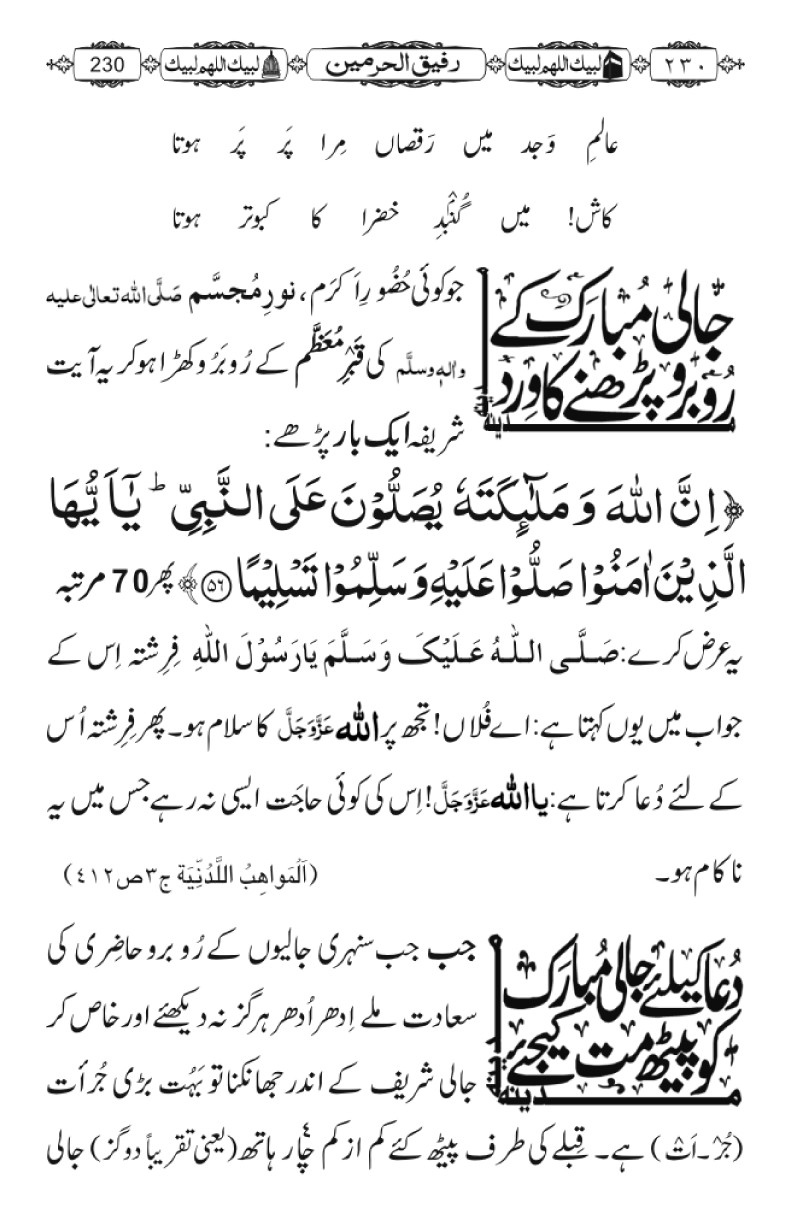 ٢٣٠ لبیك اللھم لبیك رفیق الحرمین لبیك اللھم لبیك 230
عالمِ وَجد میں رَقصاں مِرا پَر پَر ہوتا
کاش! میں گُنْبَدِ خضرا کا کبوتر ہوتا
جالی مُبارَک کے
رُوبرو پڑھنے کا وِرد
مدینہ
مدینہ
جو کوئی حُضُورِ اَکرَم ، نورِ مُجسَّم صَلَّی اللہ تعالٰی علیہ
واٰلہٖ وسلَّم کی قَبْرِ مُعَظَّم کے رُوبَرُو کھڑا ہو کر یہ آیت
شریفہ ایک بار پڑھے:
﴿اِنَّ اللهَ وَ مَلٰٓىِٕكَتَهٗ یُصَلُّوْنَ عَلَى النَّبِیِّ ؕ یٰۤاَیُّهَا
الَّذِیْنَ اٰمَنُوْا صَلُّوْا عَلَیْهِ وَ سَلِّمُوْا تَسْلِیْمًا ﴿۵۶﴾ پھر 70 مرتبہ
یہ عرض کرے: صَلَّی اللہُ عَلَیْکَ وَسَلَّمَ یَارَسُوْلَ اللهِ فِرِشتہ اِس کے
جواب میں یوں کہتا ہے: اے فُلاں! تجھ پر اللہ عَزَّوَجَلَّ کا سلام ہو۔ پھر فِرِشتہ اُس
کے لئے دُعا کرتا ہے: یا اللہ عَزَّوَجَلَّ! اِس کی کوئی حاجَت ایسی نہ رہے جس میں یہ
ناکام ہو۔ (اَلْمَواهِبُ اللَّدُنِّیَة ج٣ص٤١٢)
دُعا کیلئے جالی مُبارَک
کو پیٹھ مت کیجئے
مدینہ
مدینہ
جب جب سنہری جالیوں کے رُوبرو حاضِری کی
سعادت ملے اِدھر اُدھر ہرگز نہ دیکھئے اور خاص کر
جالی شریف کے اندر جھانکنا تو بَہُت بڑی جُرأت
(جُرْ۔اَتْ) ہے۔ قِبلے کی طرف پیٹھ کئے کم از کم چار ہاتھ (یعنی تقریباً دو گز) جالی